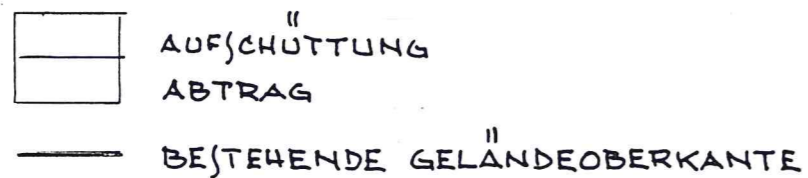 AUFSCHÜTTUNG
ABTRAG
BESTEHENDE GELÄNDEOBERKANTE